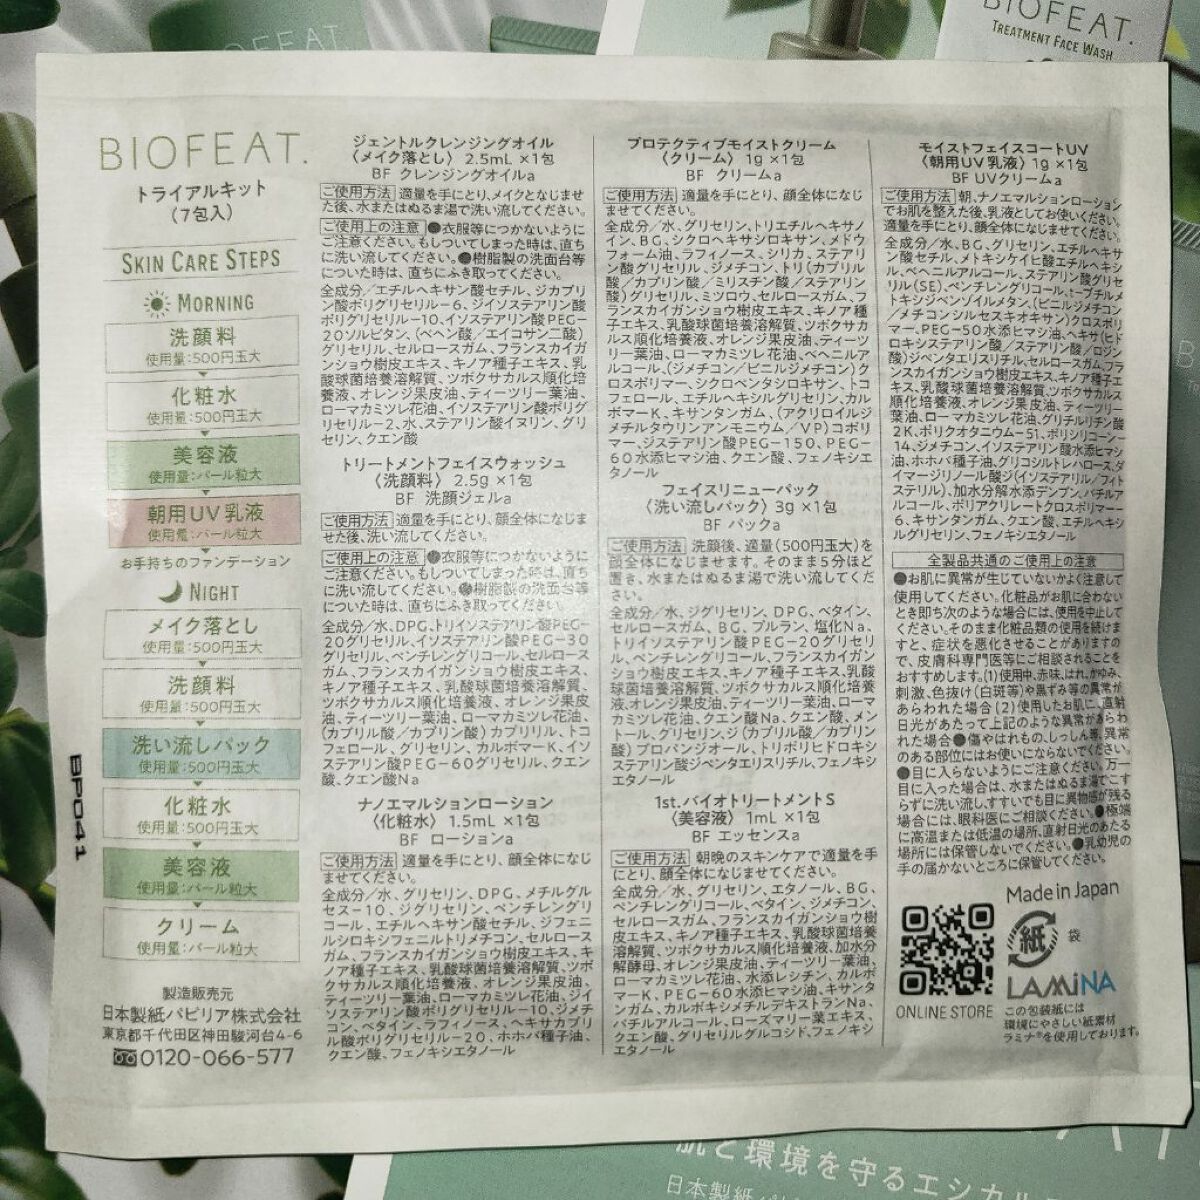 BIOFEAT.
TREATMENT FACE WASH
BIOFEAT.
トライアルキット
(7包入)
SKIN CARE STEPS
MORNING
洗顔料
使用量:500円玉大
化粧水
使用量:500円玉大
美容液
使用量:パール粒大
朝用UV乳液
使用量:パール粒大
お手持ちのファンデーション
NIGHT
メイク落とし
使用量:500円玉大
洗顔料
使用量:500円玉大
洗い流しパック
使用量:500円玉大
化粧水
使用量:500円玉大
美容液
使用量:パール粒大
クリーム
使用量:パール粒大
製造販売元
日本製紙パピリア株式会社
東京都千代田区神田駿河台4-6
0120-066-577
BP0411
ジェントルクレンジングオイル
〈メイク落とし〉 2.5mL ×1包
BF クレンジングオイルa
ご使用方法 適量を手にとり、メイクとなじませ
た後、水またはぬるま湯で洗い流してください。
ご使用上の注意 ●衣服等につかないように
ご注意ください。もしついてしまった時は、直ち
に洗い流してください。●樹脂製の洗面台等
についた時は、直ちにふき取ってください。
全成分/エチルヘキサン酸セチル、ジカプリ
ン酸ポリグリセリル-6、ジイソステアリン酸
ポリグリセリル-10、イソステアリン酸PEG-
20ソルビタン、(ベヘン酸/エイコサン二酸)
グリセリル、セルロースガム、フランスカイガ
ンショウ樹皮エキス、キノア種子エキス、乳
酸球菌培養溶解質、ツボクサカルス順化培
養液、オレンジ果皮油、ティーツリー葉油、
ローマカミツレ花油、イソステアリン酸ポリグ
リセリル-2、水、ステアリン酸イヌリン、グリ
セリン、クエン酸
トリートメントフェイスウォッシュ
〈洗顔料〉 2.5g ×1包
BF 洗顔ジェルa
ご使用方法 適量を手にとり、顔全体になじま
せた後、洗い流してください。
ご使用上の注意 ●衣服等につかないように
ご注意ください。もしついてしまった時は、直ち
に洗い流してください。●樹脂製の洗面台等
についた時は、直ちにふき取ってください。
全成分/水、DPG、トリイソステアリン酸PEG-
20グリセリル、イソステアリン酸PEG-30
グリセリル、ペンチレングリコール、セルロース
ガム、フランスカイガンショウ樹皮エキス、
キノア種子エキス、乳酸球菌培養溶解質、
ツボクサカルス順化培養液、オレンジ果皮
油、ティーツリー葉油、ローマカミツレ花油、
(カプリル酸/カプリン酸)カプリリル、トコ
フェロール、グリセリン、カルボマーK、イソ
ステアリン酸PEG-60グリセリル、クエン
酸、クエン酸Na
ナノエマルションローション
〈化粧水〉 1.5mL ×1包
BF ローションa
ご使用方法 適量を手にとり、顔全体になじ
ませてください。
全成分/水、グリセリン、DPG、メチルグル
セス-10、ジグリセリン、ペンチレングリ
コール、エチルヘキサン酸セチル、ジフェニ
ルシロキシフェニルトリメチコン、セルロース
ガム、フランスカイガンショウ樹皮エキス、キ
ノア種子エキス、乳酸球菌培養溶解質、ツボ
クサカルス順化培養液、オレンジ果皮油、
ティーツリー葉油、ローマカミツレ花油、ジイ
ソステアリン酸ポリグリセリル-10、ジメチ
コン、ベタイン、ラフィノース、ヘキサカプリ
ル酸ポリグリセリル-20、ホホバ種子油、
クエン酸、フェノキシエタノール
プロテクティブモイストクリーム
〈クリーム〉 1g ×1包
BF クリームa
ご使用方法 適量を手にとり、顔全体になじ
ませてください。
全成分/水、グリセリン、トリエチルヘキサノ
イン、BG、シクロヘキサシロキサン、メドウ
フォーム油、ラフィノース、シリカ、ステアリ
ン酸グリセリル、ジメチコン、トリ(カプリル
酸/カプリン酸/ミリスチン酸/ステアリン
酸)グリセリル、ミツロウ、セルロースガム、フ
ランスカイガンショウ樹皮エキス、キノア種
子エキス、乳酸球菌培養溶解質、ツボクサカ
ルス順化培養液、オレンジ果皮油、ティーツ
リー葉油、ローマカミツレ花油、ベヘニルア
ルコール、(ジメチコン/ビニルジメチコン)ク
ロスポリマー、シクロペンタシロキサン、トコ
フェロール、エチルヘキシルグリセリン、カル
ボマーK、キサンタンガム、(アクリロイルジ
メチルタウリンアンモニウム/VP)コポリ
マー、ジステアリン酸PEG-150、PEG-
60水添ヒマシ油、クエン酸、フェノキシエ
タノール
フェイスリニューパック
〈洗い流しパック〉 3g ×1包
BF パックa
ご使用方法 洗顔後、適量(500円玉大)を
顔全体になじませます。そのまま5分ほど
置き、水またはぬるま湯で洗い流してくだ
さい。
全成分/水、ジグリセリン、DPG、ベタイン、
セルロースガム、BG、プルラン、塩化Na、
トリイソステアリン酸PEG-20グリセリ
ル、ペンチレングリコール、フランスカイガン
ショウ樹皮エキス、キノア種子エキス、乳酸
球菌培養溶解質、ツボクサカルス順化培養
液、オレンジ果皮油、ティーツリー葉油、ローマ
カミツレ花油、クエン酸Na、クエン酸、メン
トール、グリセリン、ジ(カプリル酸/カプリン
酸)プロパンジオール、トリポリヒドロキシ
ステアリン酸ジペンタエリスリチル、フェノキシ
エタノール
1st.バイオトリートメントS
〈美容液〉 1mL ×1包
BF エッセンスa
ご使用方法 朝晩のスキンケアで適量を手
にとり、顔全体になじませてください。
全成分/水、グリセリン、エタノール、BG、
ペンチレングリコール、ベタイン、ジメチコン、
セルロースガム、フランスカイガンショウ樹
皮エキス、キノア種子エキス、乳酸球菌培養
溶解質、ツボクサカルス順化培養液、加水分
解酵母、オレンジ果皮油、ティーツリー葉油、
ローマカミツレ花油、水添レシチン、カルボ
マーK、PEG-60水添ヒマシ油、キサンタ
ンガム、カルボキシメチルデキストランNa、
バチルアルコール、ローズマリー葉エキス、
クエン酸、グリセリルグルコシド、フェノキシ
エタノール
モイストフェイスコートUV
〈朝用UV乳液〉 1g ×1包
BF UVクリームa
ご使用方法 朝、ナノエマルションローション
でお肌を整えた後、乳液としてお使いください。
適量を手にとり、顔全体になじませてください。
全成分/水、BG、グリセリン、エチルヘキサ
ン酸セチル、メトキシケイヒ酸エチルヘキシ
ル、ベヘニルアルコール、ステアリン酸グリセ
リル(SE)、ペンチレングリコール、t-ブチルメ
トキシジベンゾイルメタン、(ビニルジメチコン
/メチコンシルセスキオキサン)クロスポリ
マー、PEG-50水添ヒマシ油、ヘキサ(ヒド
ロキシステアリン酸/ステアリン酸/ロジン
酸)ジペンタエリスリチル、セルロースガム、フラ
ンスカイガンショウ樹皮エキス、キノア種子エ
キス、乳酸球菌培養溶解質、ツボクサカルス
順化培養液、オレンジ果皮油、ティーツリー
葉油、ローマカミツレ花油、グリチルリチン酸
2K、ポリクオタニウム-51、ポリシリコーン-
14、ジメチコン、イソステアリン酸水添ヒマシ
油、ホホバ種子油、グリコシルトレハロース、ダ
イマージリノール酸ジ(イソステアリル/フィト
ステリル)、加水分解水添デンプン、バチルア
ルコール、ポリアクリレートクロスポリマー-
6、キサンタンガム、クエン酸、エチルヘキシ
ルグリセリン、フェノキシエタノール
全製品共通のご使用上の注意
●お肌に異常が生じていないかよく注意して
使用してください。化粧品がお肌に合わない
とき即ち次のような場合には、使用を中止して
ください。そのまま化粧品類の使用を続けま
すと、症状を悪化させることがありますの
で、皮膚科専門医等にご相談されることを
おすすめします。(1)使用中、赤味、はれ、かゆみ、
刺激、色抜け(白斑等)や黒ずみ等の異常が
あらわれた場合 (2)使用したお肌に、直射
日光があたって上記のような異常があらわ
れた場合 ●傷やはれもの、しっしん等、異常
のある部位にはお使いにならないでください。
●目に入らないようにご注意ください。万一
目に入った場合は、水またはぬるま湯でこす
らずに洗い流し、すすいでも目に異物感が残る
場合には、眼科医にご相談ください。●極端
に高温または低温の場所、直射日光のあたる
場所には保管しないでください。●乳幼児の
手の届かないところに保管してください。
Made in Japan
紙
袋
LAMiNA
ONLINE STORE
この包装紙には
環境にやさしい紙素材
ラミナ®を使用しております。
肌と環境を守るエシカル
日本製紙パピ